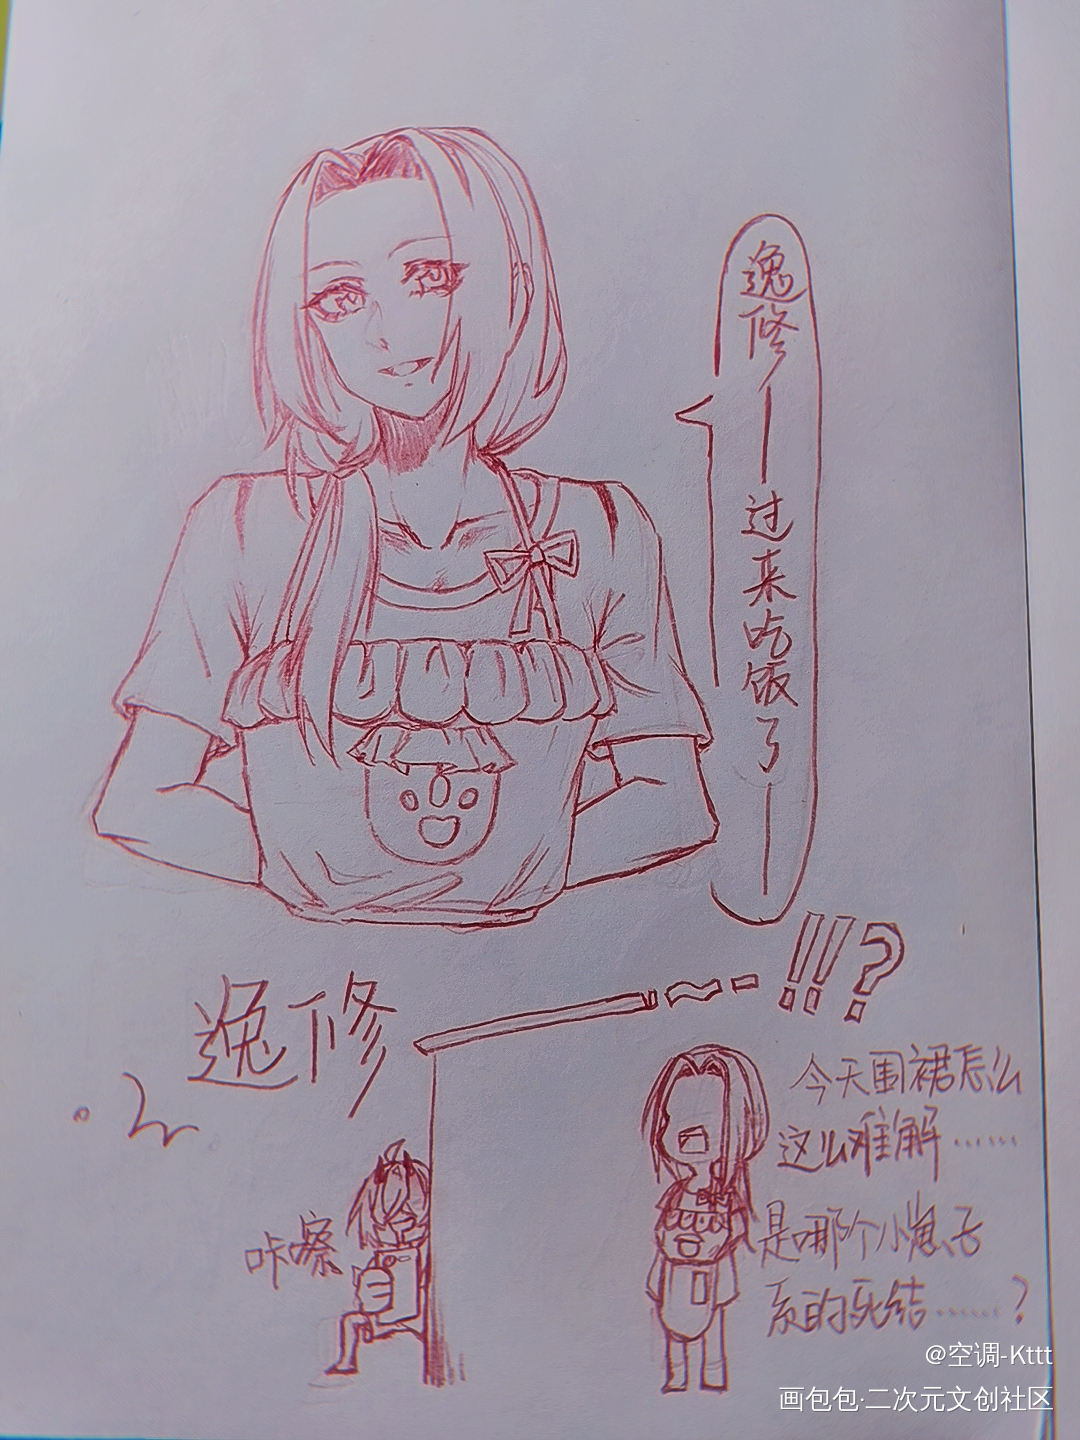 逸修——过来吃饭了——
逸修——~-!!?
咔嚓
今天围裙怎么
这么难解……
是哪个小崽子
系的死结……?
@空调-Kttt
画包包·二次元文创社区